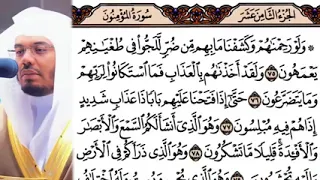 الجزء الثامن عشر سورة المؤمنون
۞ ولو رحمنهم وكشفنا ما بهم من ضر للجوا في طغينهم
يعمهون ٧٥ ولقد أخذنهم بالعذاب فما استكانوا لربهم
وما يتضرعون ٧٦ حتى إذا فتحنا عليهم بابا ذا عذاب شديد
إذا هم فيه مبلسون ٧٧ وهو الذي أنشأ لكم السمع والأبصر
والأفئدة قليلا ما تشكرون ٧٨ وهو الذي ذرأكم في الأرض